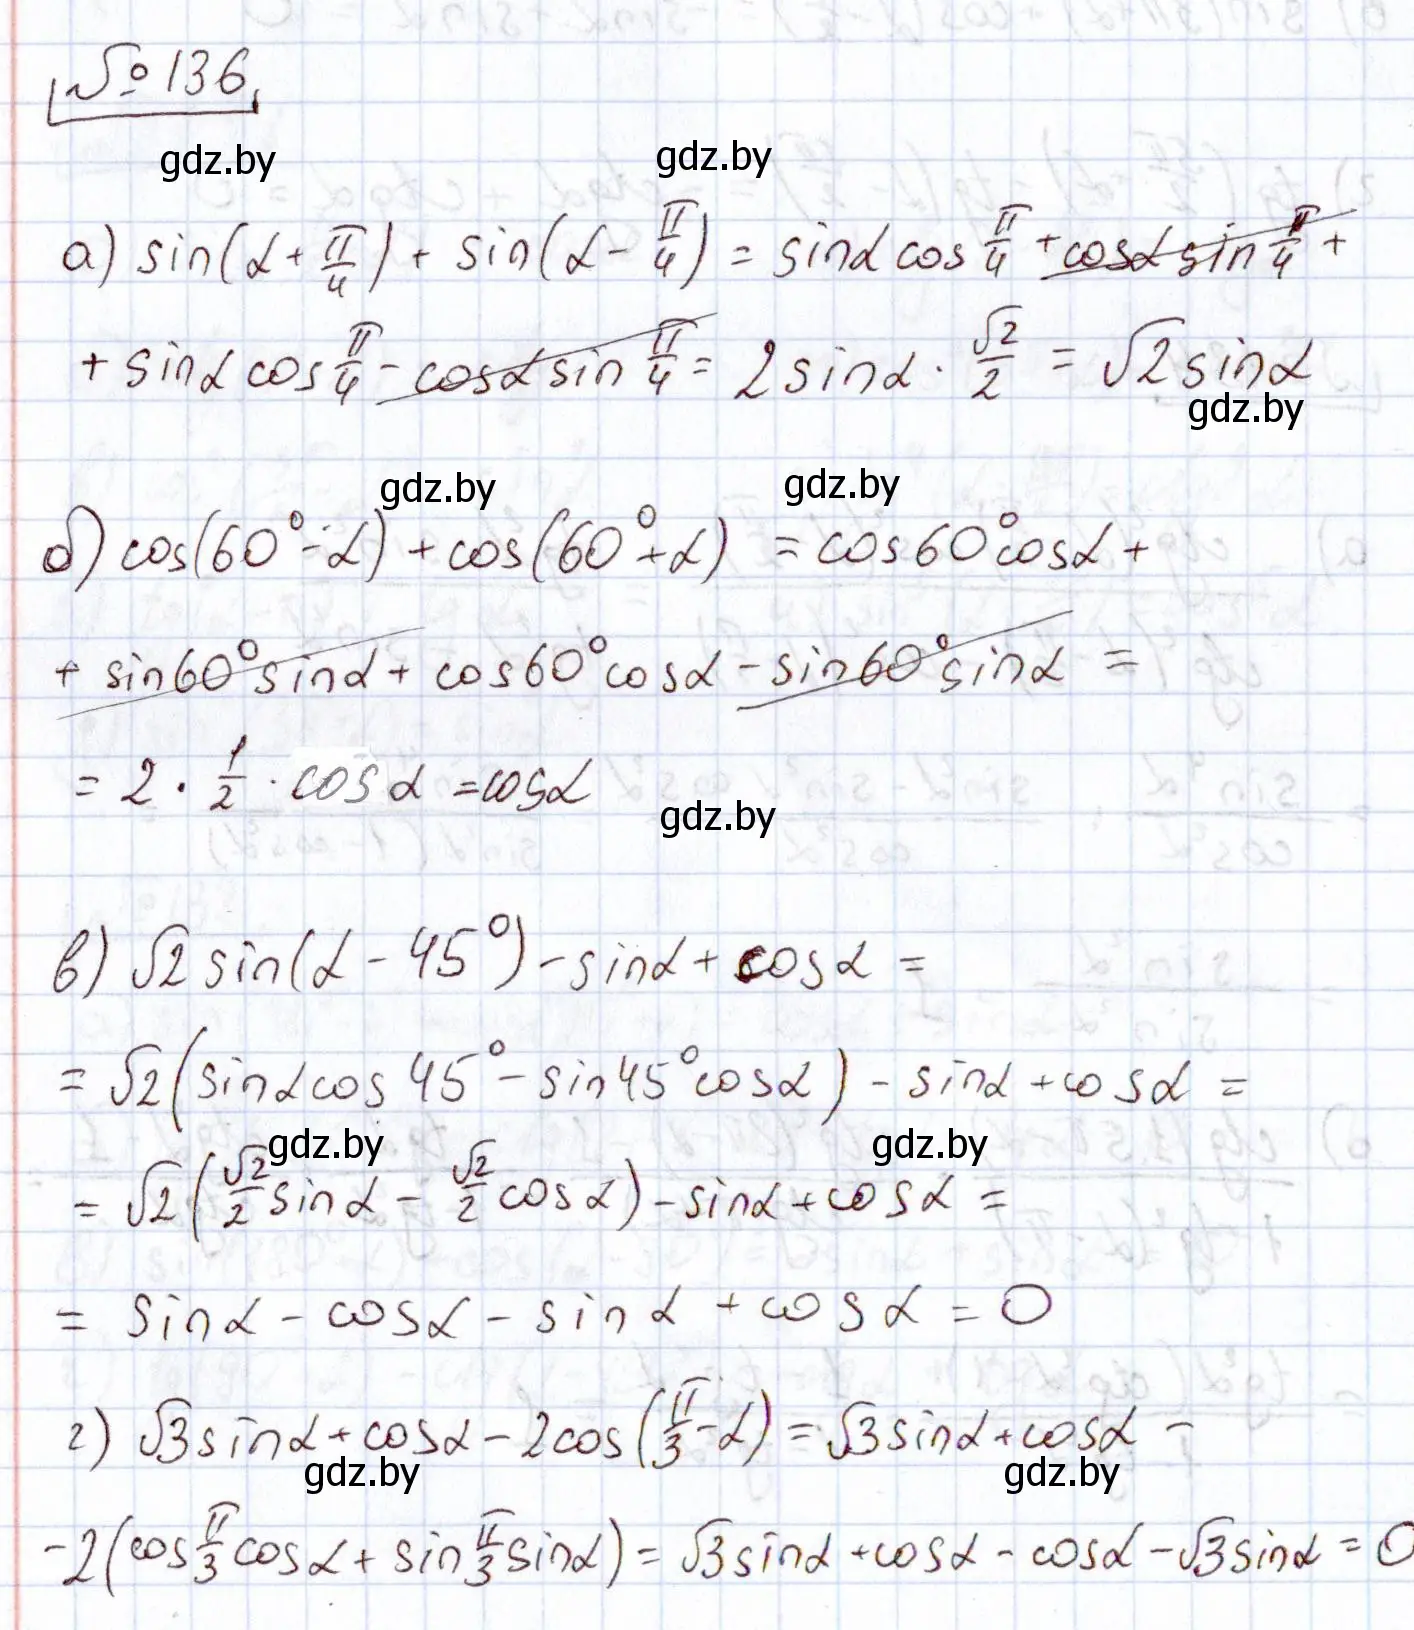 № 136
gdz.by gdz.by
а) sin(α + π/4) + sin(α - π/4) = sinα cos π/4 + cosα sin π/4 +
+ sinα cos π/4 - cosα sin π/4 = 2 sinα · √2/2 = √2 sinα
gdz.by
gdz.by gdz.by
б) cos(60° - α) + cos(60° + α) = cos60° cosα +
+ sin60° sinα + cos60° cosα - sin60° sinα =
= 2 · 1/2 · cosα = cosα
gdz.by
в) √2 sin(α - 45°) - sinα + cosα =
= √2(sinα cos45° - sin45° cosα) - sinα + cosα =
gdz.by gdz.by
= √2(√2/2 sinα - √2/2 cosα) - sinα + cosα =
= sinα - cosα - sinα + cosα = 0
г) √3 sinα + cosα - 2cos(π/3 - α) = √3 sinα + cosα -
gdz.by gdz.by
- 2(cos π/3 cosα + sin π/3 sinα) = √3 sinα + cosα - cosα - √3 sinα = 0